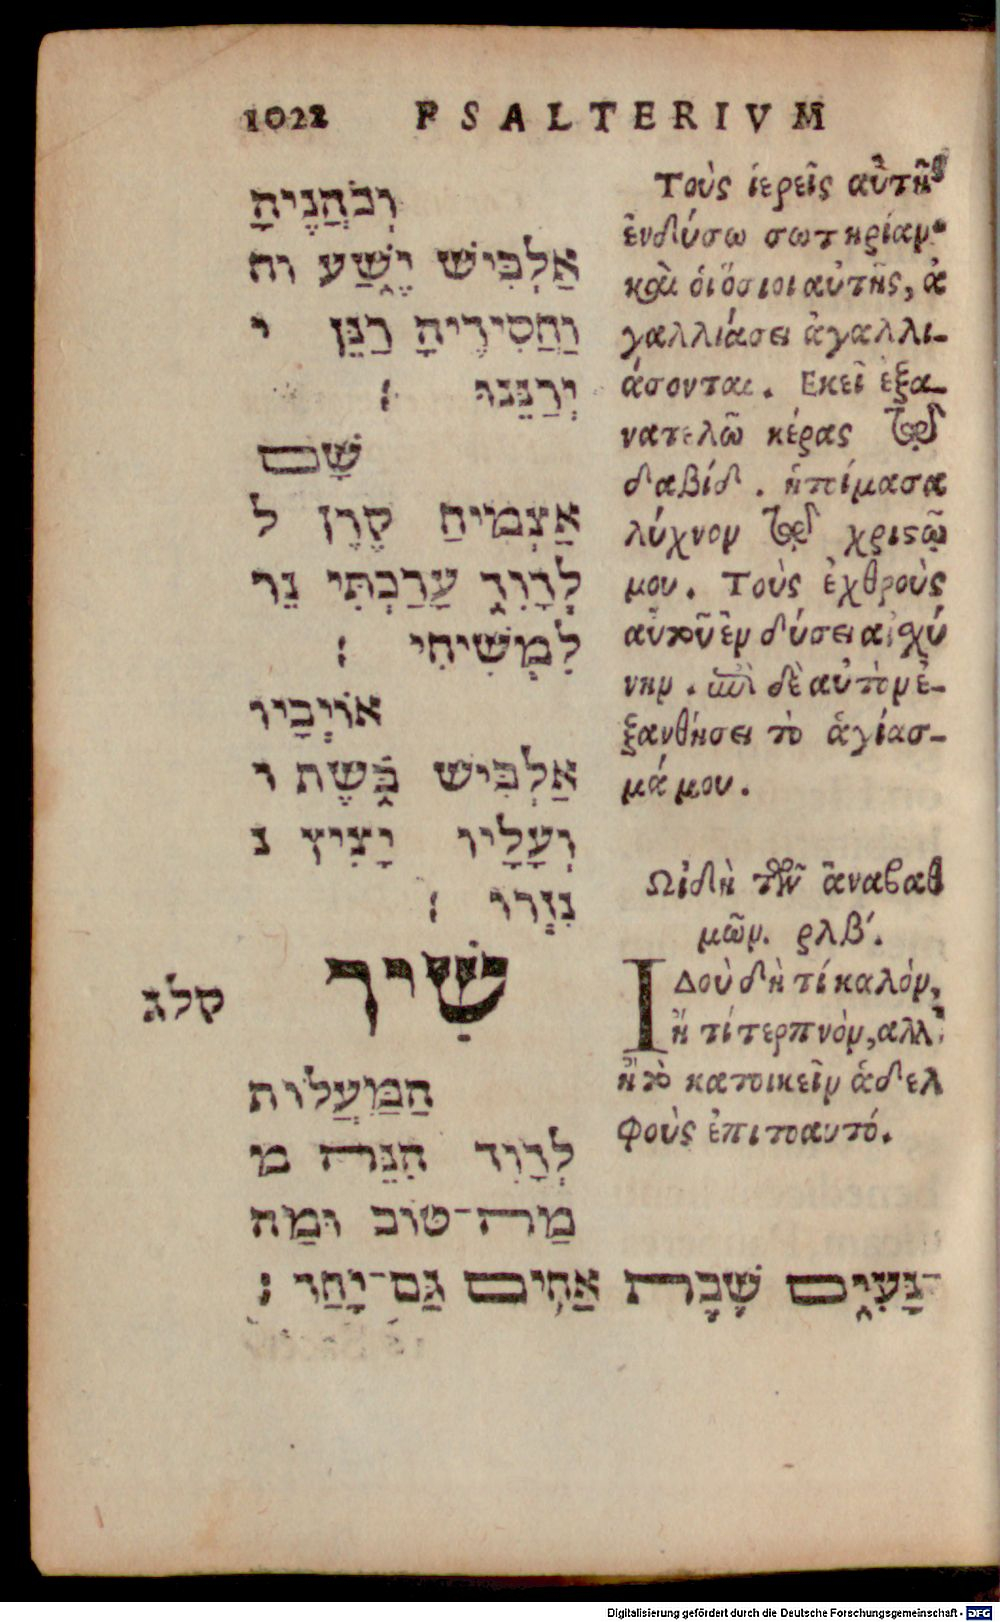 1022 PSALTERIVM
וְכֹהֲנֶיהָ
אַלְבִּישׁ יֶ֑שַׁע וח
וַחֲסִידֶיהָ רַנֵּן י
יְרַנֵּנוּ ׃
שָׁם
אַצְמִיחַ קֶרֶן ל
לְדָוִ֑ד עָרַכְתִּי נֵר
לִמְשִׁיחִי ׃
אוֹיְבָיו
אַלְבִּישׁ בֹּ֑שֶׁת ו
וְעָלָיו יָצִיץ נ
נִזְרוֹ ׃
קלג
שִׁיר
הַמַּעֲלוֹת
לְדָוִד הִנֵּה מ
מַה־טּוֹב וּמַה
־נָּעִ֑ים שֶׁבֶת אַחִים גַּם־יָחַד ׃
Τοὺς ἱερεῖς αὐτῆς
ἐνδύσω σωτηρίαν·
καὶ οἱ ὅσιοι αὐτῆς, ἀ
γαλλιάσει ἀγαλλι-
άσονται. Εκεῖ ἐξα-
νατελῶ κέρας τῷ
δαβίδ. ἡτοίμασα
λύχνον τῷ χριστῷ
μου. Τοὺς ἐχθροὺς
αὐτοῦ ἐνδύσει αἰσχύ
νην. ἐπὶ δὲ αὐτὸν ἐ-
ξανθήσει τὸ ἁγίασ-
μά μου.
Ωἰδὴ τῶν ἀναβαθ
μῶν. ρλβ´.
ΙΔοὺ δὴ τί καλόν,
ἢ τί τερπνόν, ἀλλ'
ἢ τὸ κατοικεῖν ἀδελ
φοὺς ἐπιτοαυτό.
Digitalisierung gefördert durch die Deutsche Forschungsgemeinschaft - DFG